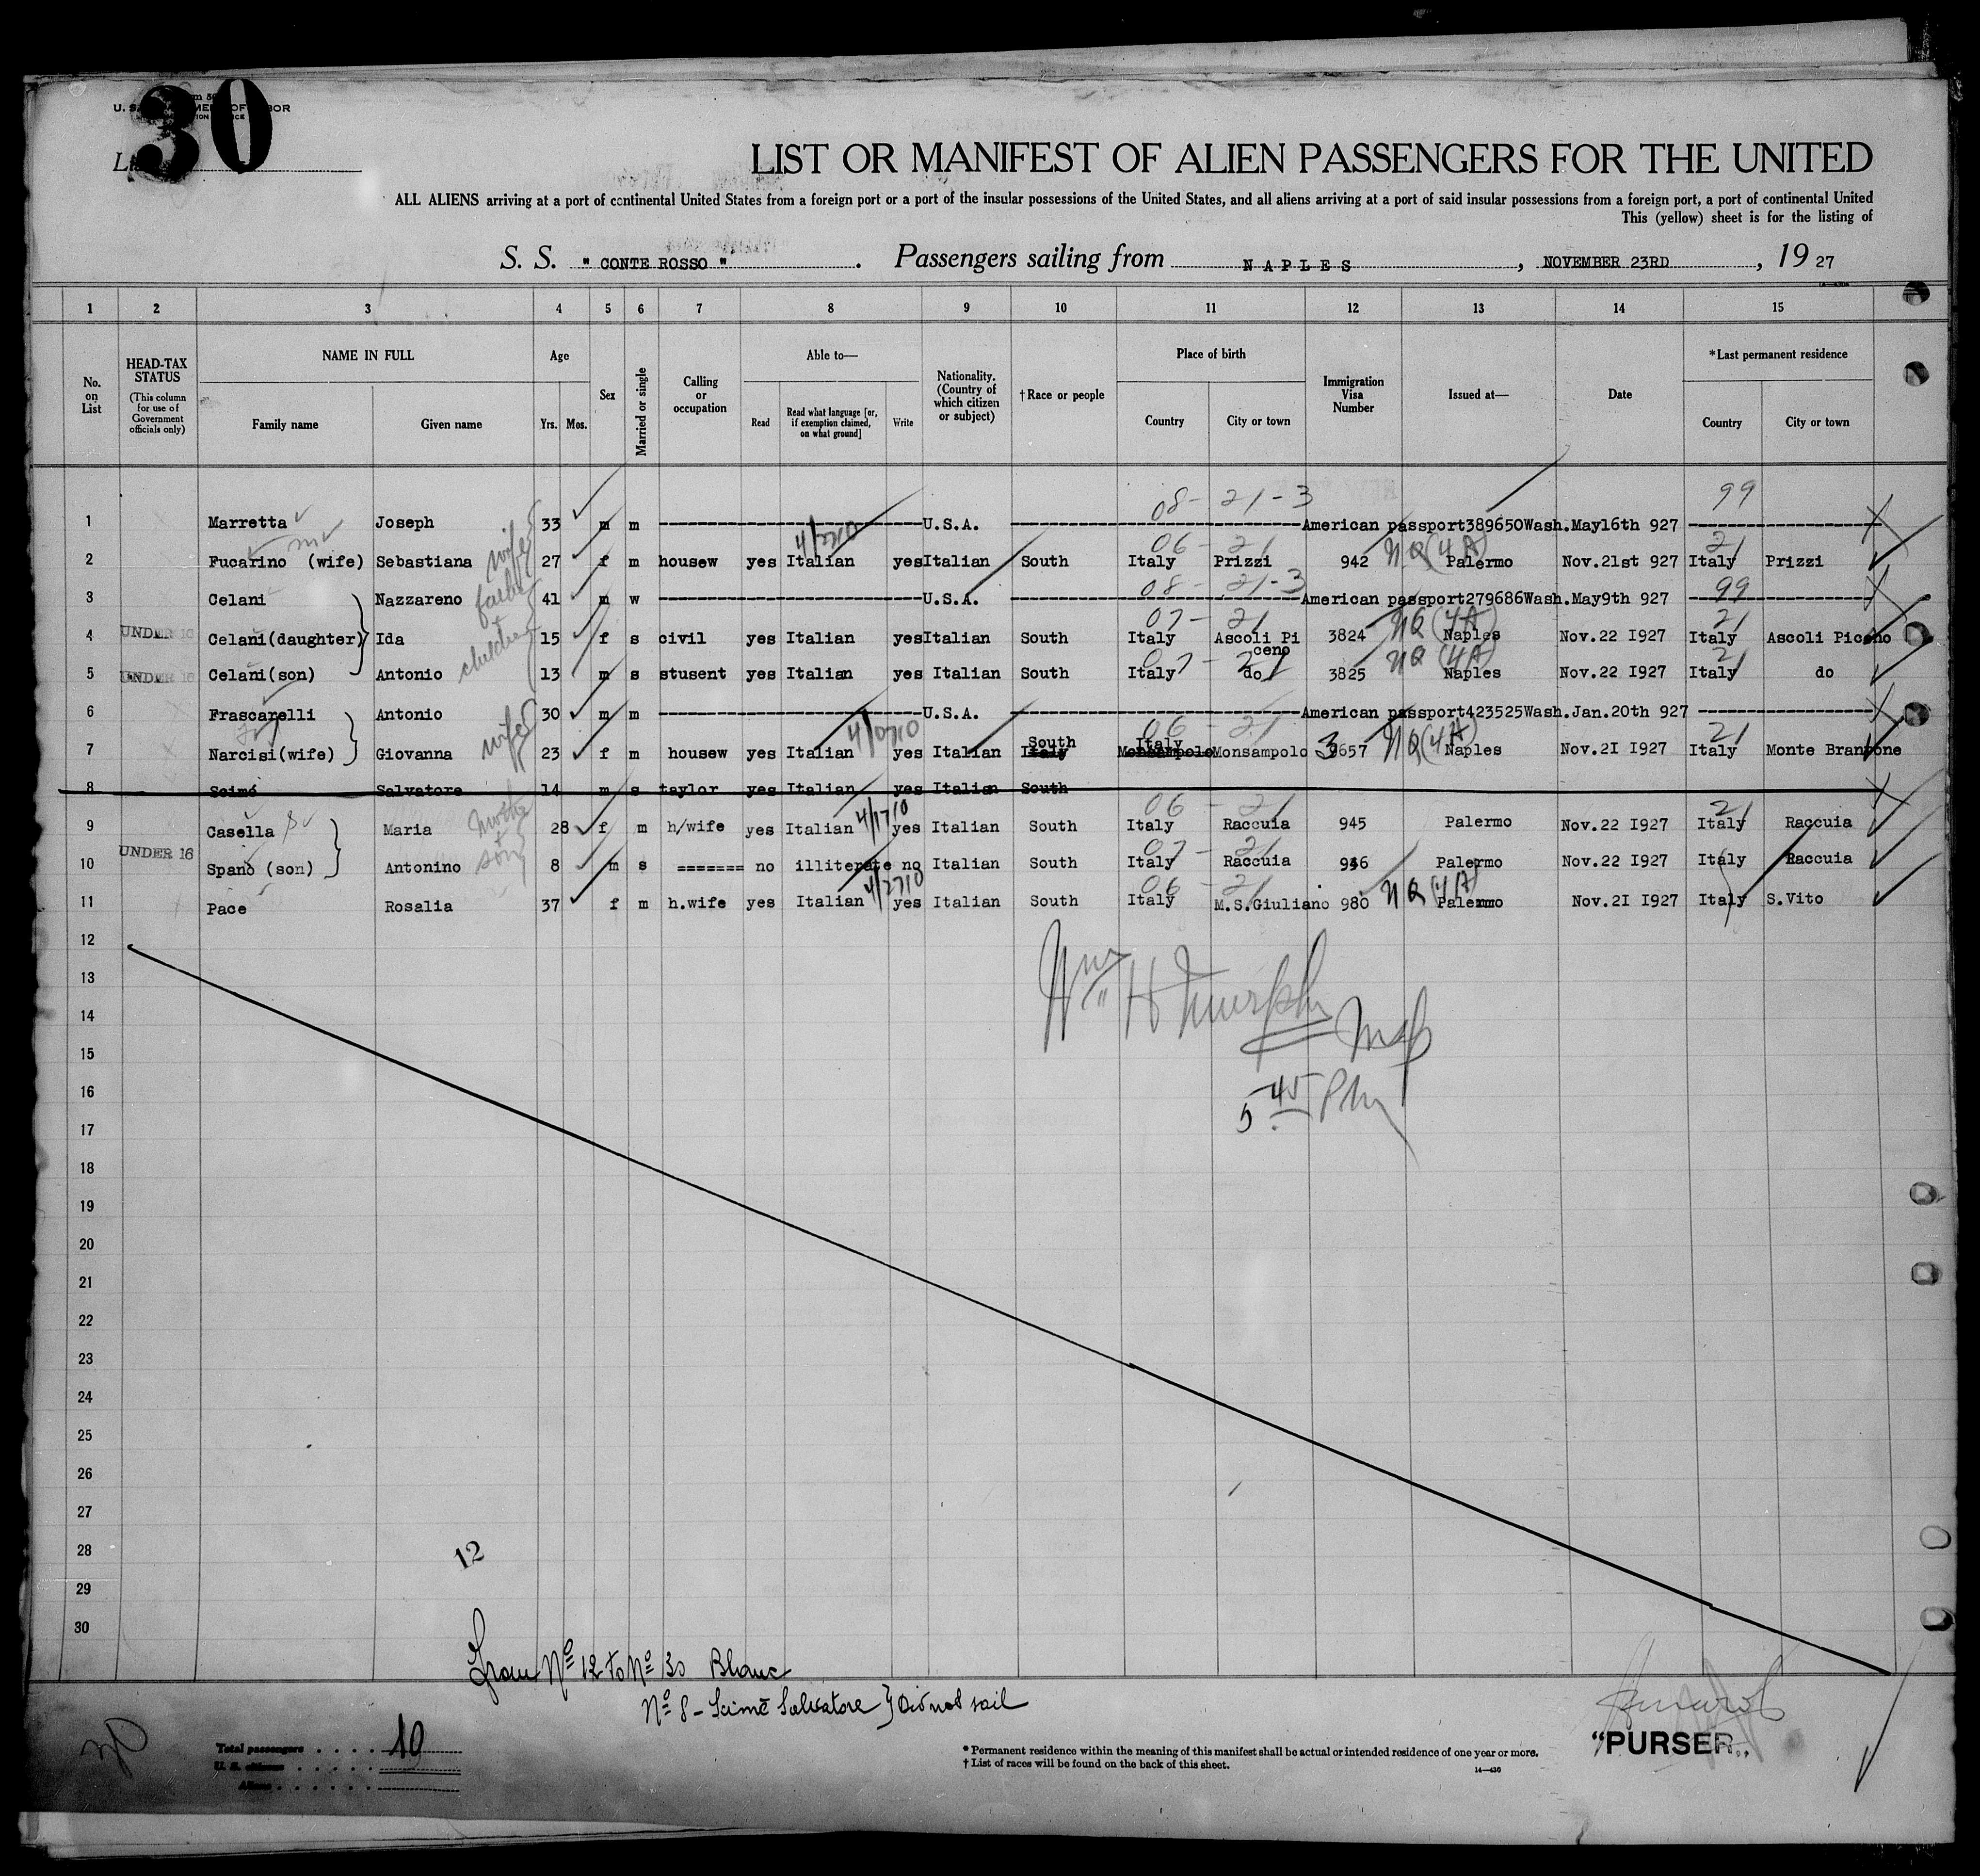 30
LIST OR MANIFEST OF ALIEN PASSENGERS FOR THE UNITED
ALL ALIENS arriving at a port of continental United States from a foreign port or a port of the insular possessions of the United States, and all aliens arriving at a port of said insular possessions from a foreign port, a port of continental United
This (yellow) sheet is for the listing of
S. S. " CONTE ROSSO ". Passengers sailing from NAPLES, NOVEMBER 23RD, 19 27
1 2 3 4 5 6 7 8 9 10 11 12 13 14 15
No. on List
HEAD-TAX STATUS (This column for use of Government officials only)
NAME IN FULL Family name Given name
Age Yrs. Mos.
Sex
Married or single
Calling or occupation
Able to— Read Read what language [or, if exemption claimed, on what ground] Write
Nationality. (Country of which citizen or subject)
†Race or people
Place of birth Country City or town
Immigration Visa Number
Issued at—
Date
*Last permanent residence Country City or town
08- 21-3 99
1 Marretta Joseph 33 m m U.S.A. American passport389650Wash.May16th 927
4/2710 06 - 21 NQ (4A) 21
2 Fucarino (wife) Sebastiana wife 27 f m housew yes Italian yes Italian South Italy Prizzi 942 Palermo Nov.21st 927 Italy Prizzi
08 - 21-3 99
3 Celani Nazzareno father 41 m w U.S.A. American passport279686Wash.May9th 927
07 - 21 NQ (4A) 21
4 UNDER 16 Celani(daughter) Ida children 15 f s civil yes Italian yes Italian South Italy Ascoli Pi ceno 3824 Naples Nov.22 I927 Italy Ascoli Piceno
07 - 21 NQ (4A) 21
5 UNDER 16 Celani(son) Antonio 13 m s stusent yes Italian yes Italian South Italy do 3825 Naples Nov.22 I927 Italy do
6 Frascarelli Antonio 30 m m U.S.A. American passport423525Wash.Jan.20th 927
06 - 21 NQ (4A) 21
7 Narcisi(wife) Giovanna wife 23 f m housew yes Italian yes Italian South Italy Italy Monsampolo Monsampolo 3657 Naples Nov.2I I927 Italy Monte Branpone
8 Scimé Salvatore 14 m s taylor yes Italian yes Italian South
4/1710 06 - 21 21
9 Casella Maria mother 28 f m h/wife yes Italian yes Italian South Italy Raccuia 945 Palermo Nov.22 I927 Italy Raccuia
07 - 21
10 UNDER 16 Spanò (son) Antonino son 8 m s ======= no illiterate no Italian South Italy Raccuia 946 Palermo Nov.22 I927 Italy Raccuia
4/2710 06 - 21 NQ (4A)
11 Pace Rosalia 37 f m h.wife yes Italian yes Italian South Italy M.S.Giuliano 980 Palermo Nov.2I I927 Italy S.Vito
12
13
14 Wm H Murphy
15
16 5 45 PM
17
18
19
20
21
22
23
24
25
26
27
28
29
30
12
From Nº 12 to Nº 30 Blanc
Nº 8 - Scimè Salvatore } Did not sail
"PURSER"
Total passengers . . . . 10
U. S. citizens . . . . .
Aliens . . . . . .
* Permanent residence within the meaning of this manifest shall be actual or intended residence of one year or more.
† List of races will be found on the back of this sheet.
14—430